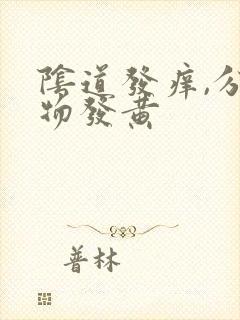 陰道發痒,分
物發黃
普林